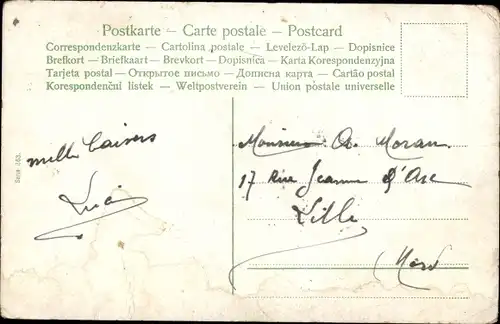 Postkarte — Carte postale — Postcard
Correspondenzkarte — Cartolina postale — Levelező-Lap — Dopisnice
Brefkort — Briefkaart — Brevkort — Dopisnica — Karta Korespondenzyjna
Tarjeta postal — Открытое письмо — Дописна карта — Cartão postal
Korespondenční lístek — Weltpostverein — Union postale universelle
mille baisers
Luci
Monsieur A. Moran
17 Rue Jeanne d'Arc
Lille
Nord
Serie